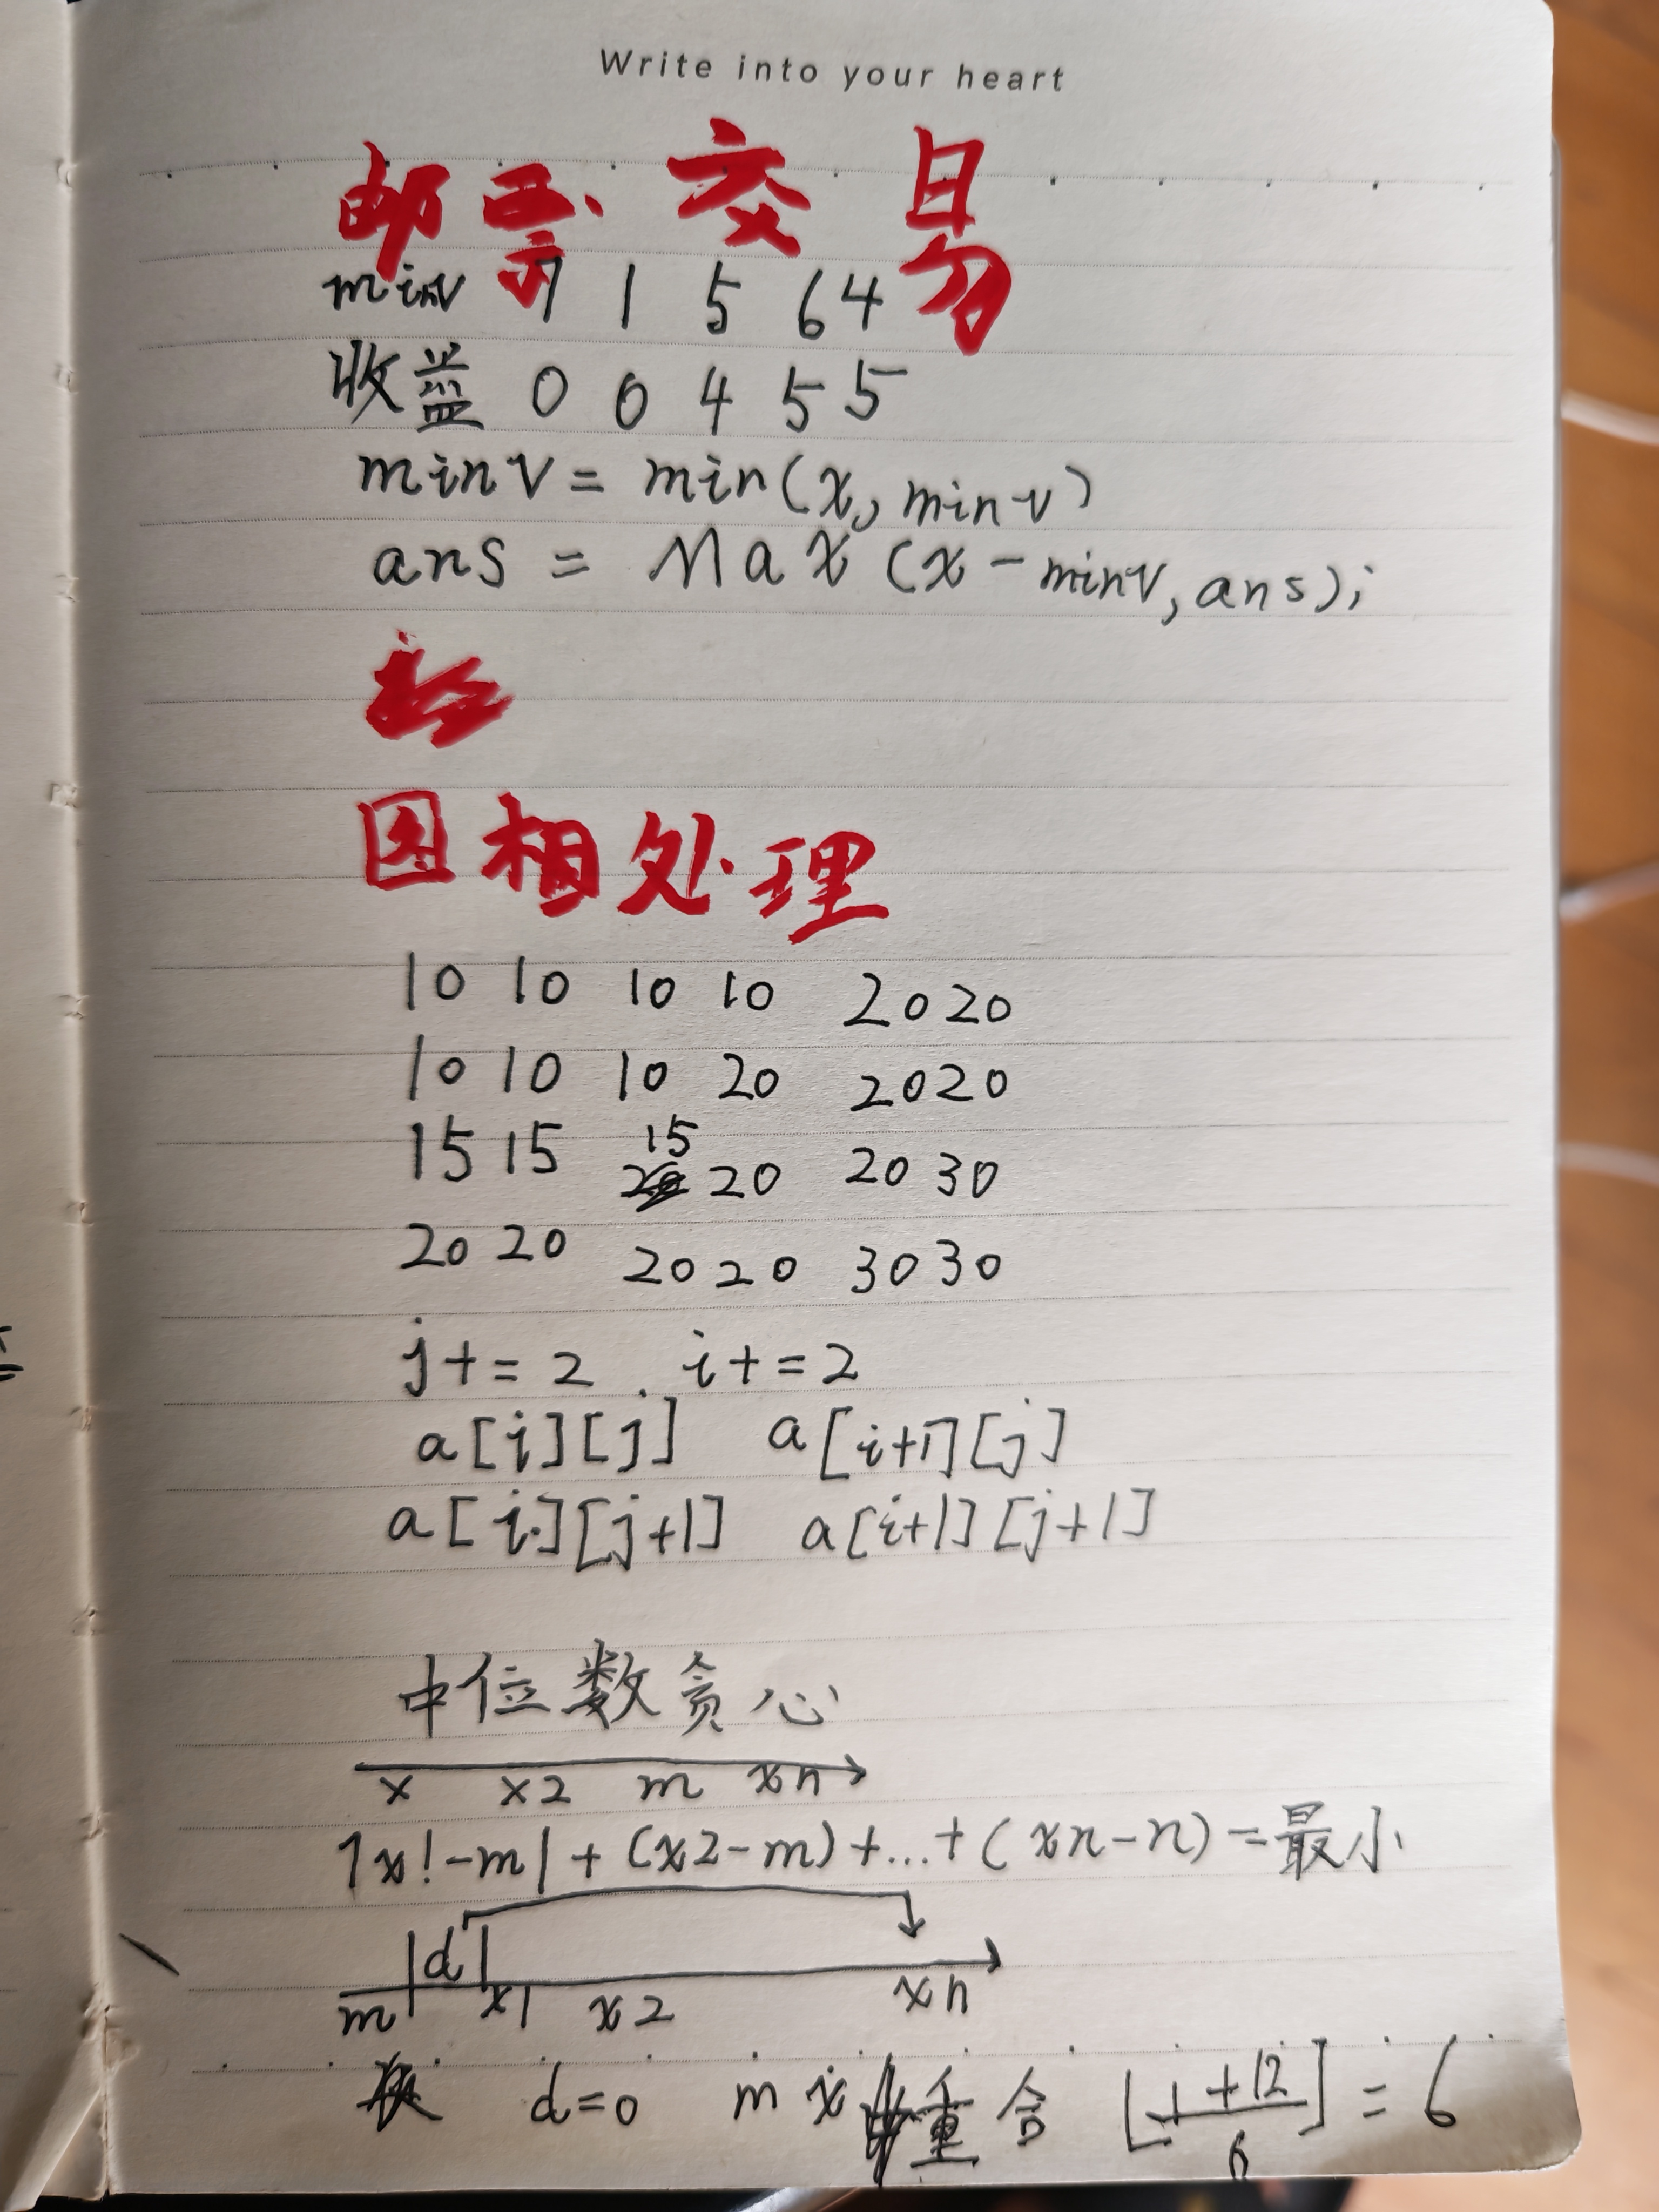 Write into your heart
邮票交易
minv 7 1 5 6 4
收益 0 0 4 5 5
minv = min(x, minv)
ans = Max (x - minv, ans);
图相处理
10 10 10 10 20 20
10 10 10 20 20 20
15 15 15 20 20 30
20 20 20 20 30 30
j += 2 . i += 2
a[i][j] a[i+1][j]
a[i][j+1] a[i+1][j+1]
中位数贪心
x x2 m xn
|x!-m| + (x2-m) +...+ (xn-n) = 最小
d
m x1 x2 xn
d=0 m x 重合 [1+12/6] = 6